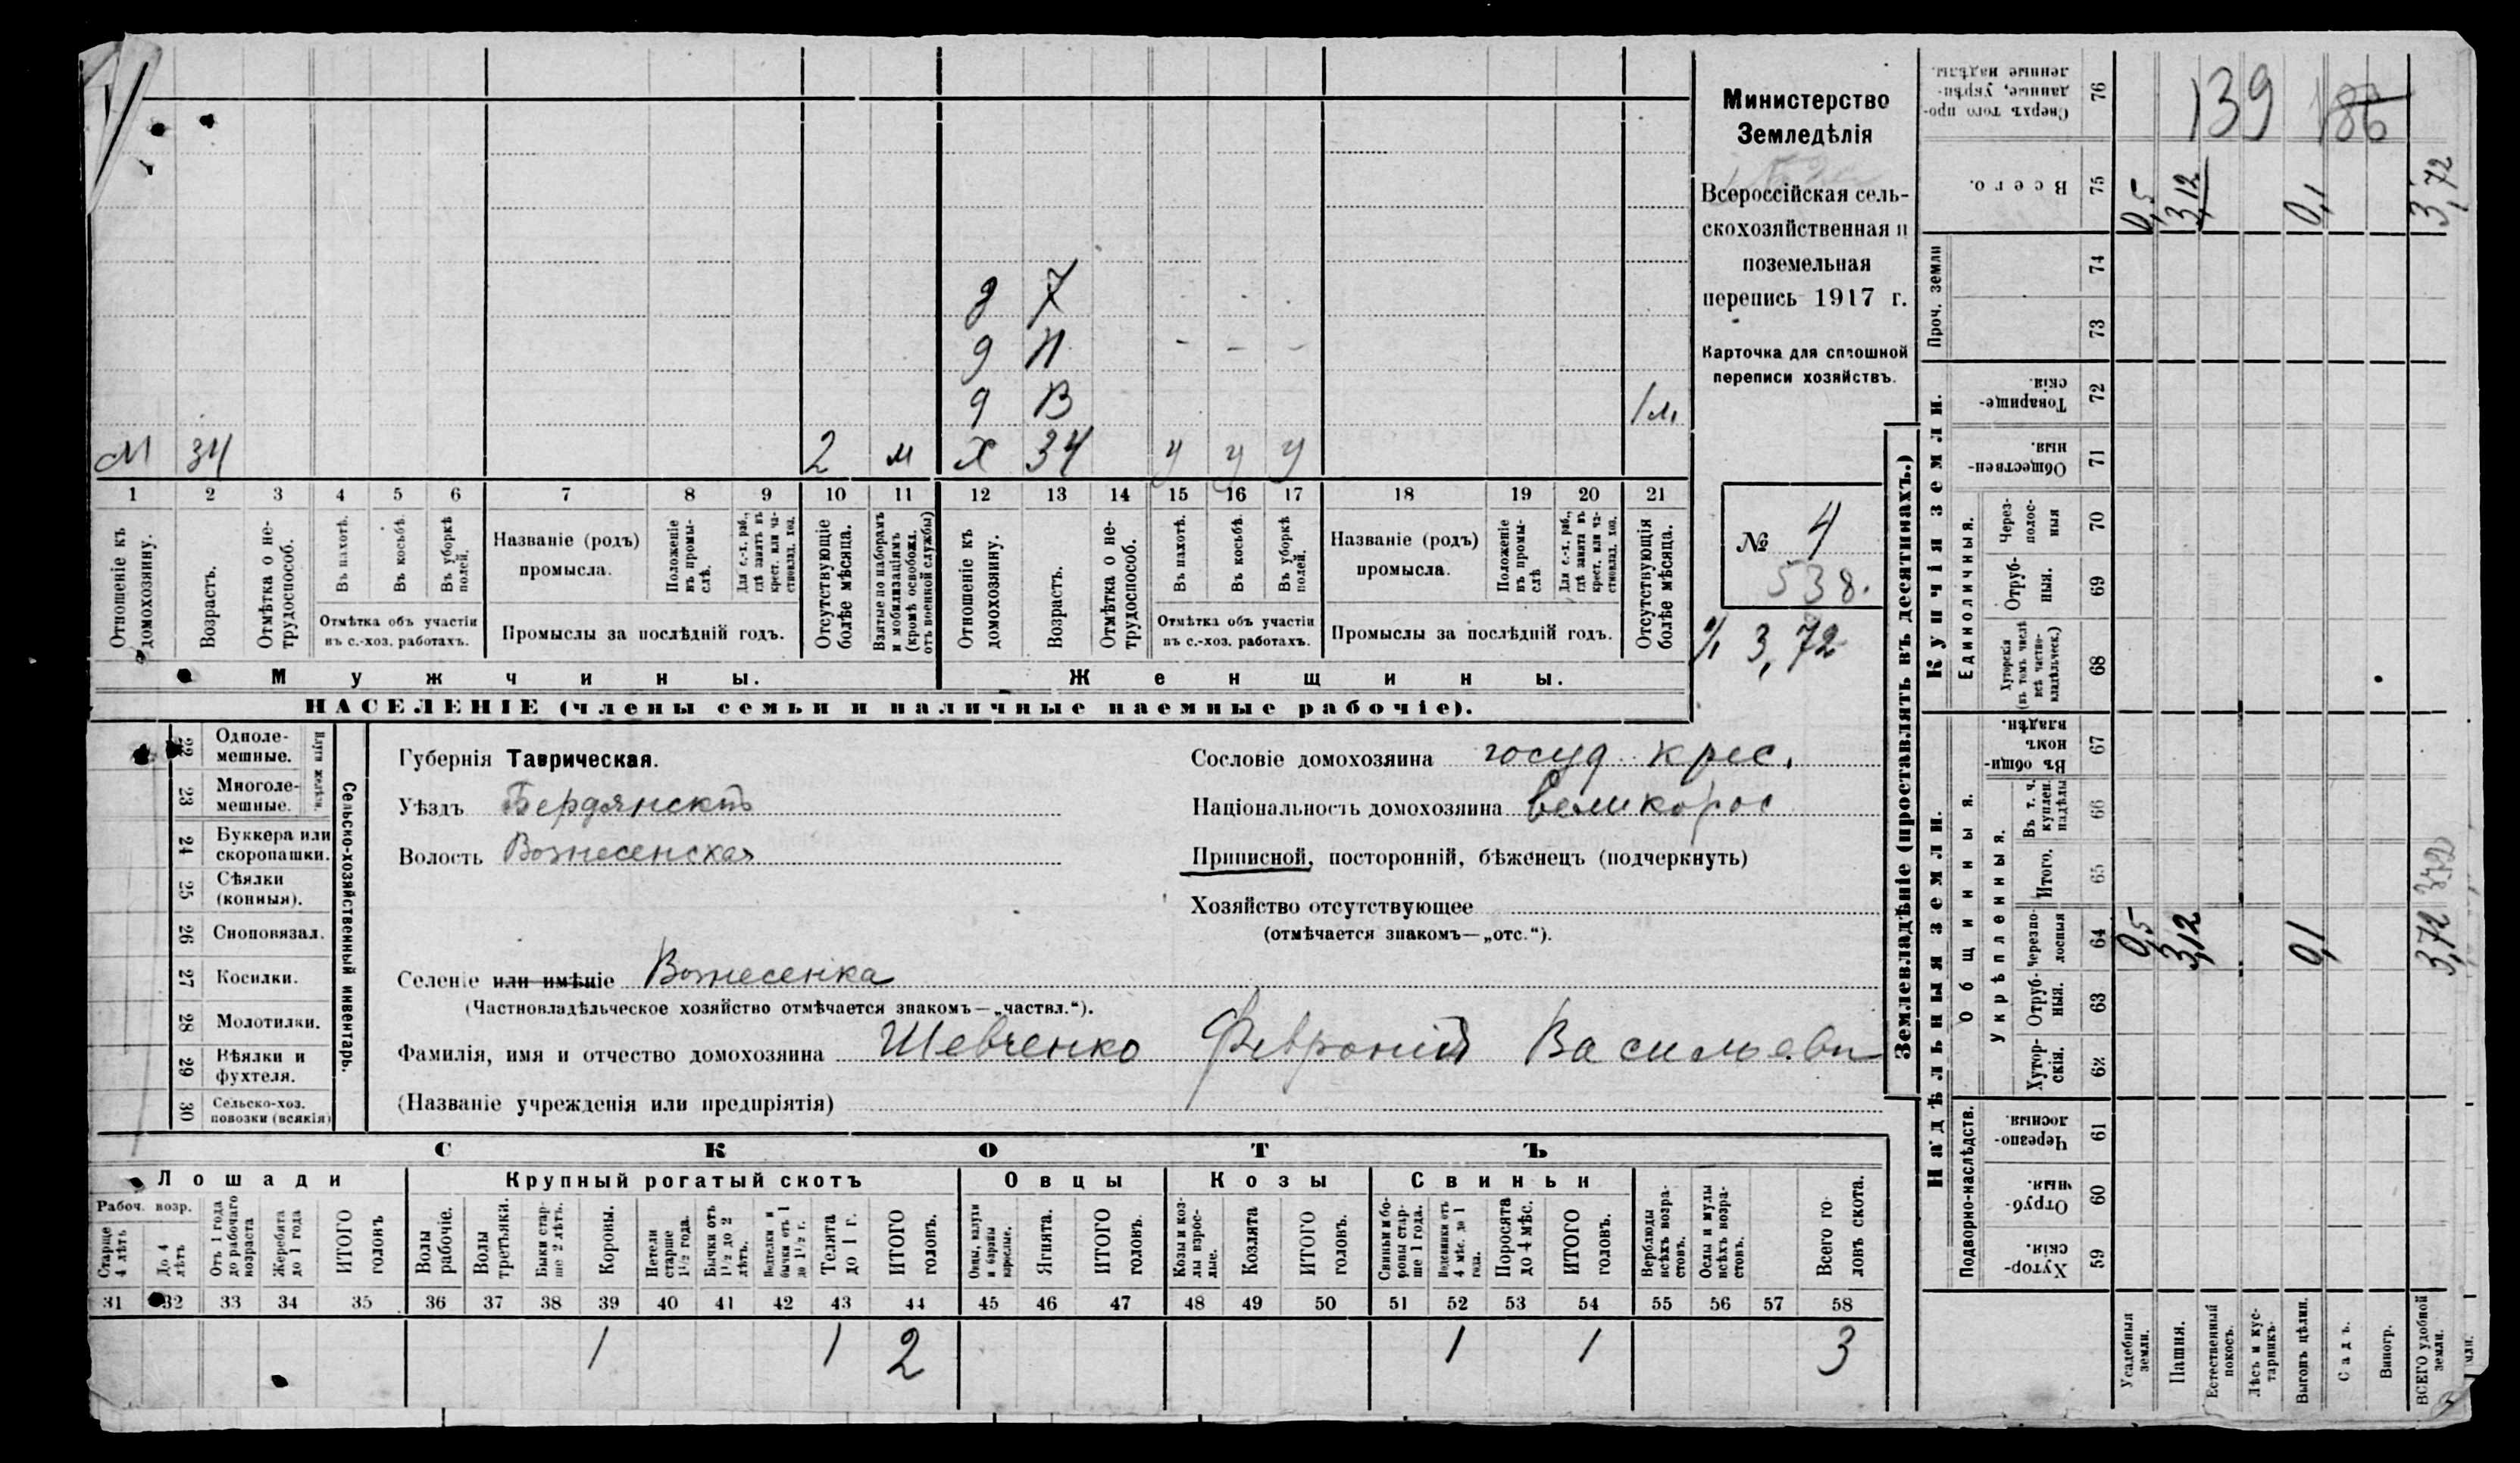 Министерство
Земледѣлія
Всероссійская сель-
скохозяйственная и
поземельная
перепись 1917 г.
Карточка для сплошной
переписи хозяйствъ.
№ 4
538.
3,72
д 7
д
д
1 м
М 34 2 м х 34 у у у
1 2 3 4 5 6 7 8 9 10 11 12 13 14 15 16 17 18 19 20 21
Отношеніе къ домохозяину.
Возрастъ.
Отмѣтка о не-трудоспособ.
Въ пахотѣ.
Въ косьбѣ.
Въ уборкѣ полей.
Отмѣтка объ участіи
въ с.-хоз. работахъ.
Названіе (родъ)
промысла.
Положеніе въ промы-слѣ.
Для с.-х. раб., гдѣ занятъ въ крест. или ча-стновлад. хоз.
Промыслы за послѣдній годъ.
Отсутствующіе болѣе мѣсяца.
Взятые по наборамъ и мобилизаціямъ (кромѣ освобожд. отъ военной службы)
Отношеніе къ домохозяину.
Возрастъ.
Отмѣтка о не-трудоспособ.
Въ пахотѣ.
Въ косьбѣ.
Въ уборкѣ полей.
Отмѣтка объ участіи
въ с.-хоз. работахъ.
Названіе (родъ)
промысла.
Положеніе въ промы-слѣ
Для с.-х. раб., гдѣ занята въ крест. или ча-стновлад. хоз.
Промыслы за послѣдній годъ.
Отсутствующія болѣе мѣсяца.
Мужчины.
Женщины.
НАСЕЛЕНІЕ (члены семьи и наличные наемные рабочіе).
22 Одноле-мешные.
23 Многоле-мешные.
Плуги желѣзн.
24 Буккера или скоропашки.
25 Сѣялки (конныя).
26 Сноповязал.
27 Косилки.
28 Молотилки.
29 Вѣялки и фухтеля.
30 Сельско-хоз. повозки (всякія)
Сельско-хозяйственный инвентарь.
Губернія Таврическая.
Уѣздъ Бердянскъ
Волость Вознесенская
Сословіе домохозяина госуд. крес.
Національность домохозяина великорос
Приписной, посторонній, бѣженецъ (подчеркнуть)
Хозяйство отсутствующее
(отмѣчается знакомъ—„отс.“).
Селеніе или имѣніе Вознесенка
(Частновладѣльческое хозяйство отмѣчается знакомъ—„частвл.“).
Фамилія, имя и отчество домохозяина Шевченко Февроній Васильеви
(Названіе учрежденія или предпріятія)
СКОТЪ
Лошади Крупный рогатый скотъ Овцы Козы Свиньи
Рабоч. возр.
Старше 4 лѣтъ
До 4 лѣтъ
Отъ 1 года до рабочаго возраста
Жеребята до 1 года
ИТОГО головъ
Волы рабочіе.
Волы третьяки.
Быки стар-ше 2 лѣтъ.
Коровы.
Нетели старше 1½ года.
Бычки отъ 1½ до 2 лѣтъ.
бычки отъ 1 до 1½ г.
Телята до 1 г.
ИТОГО головъ.
Овцы, валухи и бараны взрослые.
Ягнята.
ИТОГО головъ.
Козы и коз-лы взрос-лые.
Козлята
ИТОГО головъ.
Свиньи и бо-ровы стар-ше 1 года.
Подсвинки отъ 4 мѣс. до 1 года.
Поросята до 4 мѣс.
ИТОГО головъ.
Верблюды всѣхъ возра-стовъ.
Ослы и мулы всѣхъ возра-стовъ.
Всего го-ловъ скота.
31 32 33 34 35 36 37 38 39 40 41 42 43 44 45 46 47 48 49 50 51 52 53 54 55 56 57 58
1 1 2 1 1 3
Землевладѣніе (проставлять въ десятинахъ.)
Надѣльныя земли.
Купчія земли.
Проч. земли
Подворно-наслѣдств.
Общинныя.
Укрѣпленныя.
Единоличныя.
139 186
Сверхъ того про-данные, укрѣп-ленные надѣлы. 76
Всего. 75 0,5 3,12 0,1 3,72
74
73
Товарище-скія. 72
Обществен-ныя. 71
Через-полос-ныя 70
Отруб-ныя. 69
Хуторскія (въ томъ числѣ всѣ частно-владѣльческ.) 68
Въ общин-номъ владѣн. 67
Въ т. ч. куплен. надѣлы 66
Итого. 65
Черезпо-лосныя 64 0,5 3,12 0,1 3,72
Отруб-ныя. 63
Хутор-скія. 62
Черезпо-лосныя. 61
Отруб-ныя. 60
Хутор-скія. 59
Усадебныя земли.
Пашня.
Естественный покосъ.
Лѣсъ и кус-тарникъ.
Выгонъ цѣлин.
Садъ.
Виногр.
ВСЕГО удобной земли.